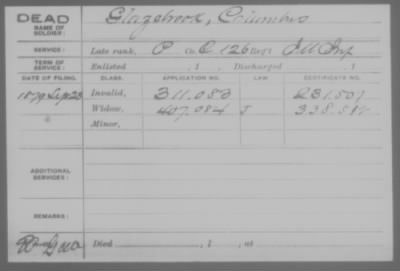 DEAD
NAME OF SOLDIER: Glazebrook, Columbus
SERVICE: Late rank, P Co. C, 126 Reg't Ill Inf
TERM OF SERVICE: Enlisted , 1 , Discharged , 1
DATE OF FILING. CLASS. APPLICATION NO. LAW CERTIFICATE NO.
1879 Sep 23 Invalid, 311.083 231.501
Widow, 407.084 J
Minor,
ADDITIONAL SERVICES:
REMARKS:
Died , 1 , at